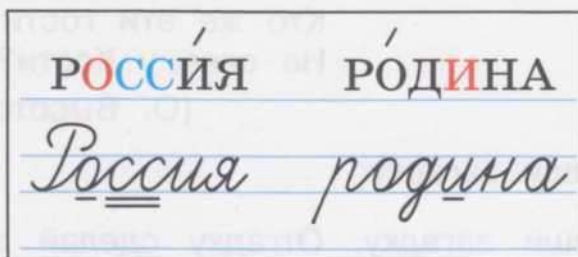 РОССИЯ РОДИНА
Россия родина